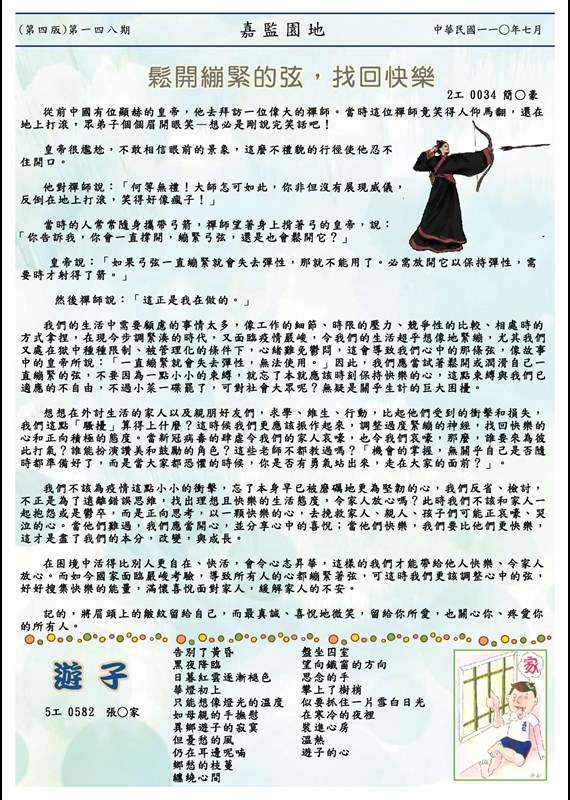 (第四版)第一四八期
嘉監園地
中華民國一一〇年七月
鬆開繃緊的弦，找回快樂
2工 0034 簡〇豪
從前中國有位顯赫的皇帝，他去拜訪一位偉大的禪師。當時這位禪師竟笑得人仰馬翻，還在
地上打滾，眾弟子個個眉開眼笑—想必是剛說完笑話吧！
皇帝很尷尬，不敢相信眼前的景象，這麼不禮貌的行徑使他忍不
住開口。
他對禪師說：「何等無禮！大師怎可如此，你非但沒有展現威儀，
反倒在地上打滾，笑得好像瘋子！」
當時的人常常隨身攜帶弓箭，禪師望著身上揹著弓的皇帝，說：
「你告訴我，你會一直撐開，繃緊弓弦，還是也會鬆開它？」
皇帝說：「如果弓弦一直繃緊就會失去彈性，那就不能用了。必需放開它以保持彈性，需
要時才射得了箭。」
然後禪師說：「這正是我在做的。」
我們的生活中需要顧慮的事情太多，像工作的細節、時限的壓力、競爭性的比較、相處時的
方式拿捏，在現今步調緊湊的時代，又面臨疫情嚴峻，令我們的生活超乎想像地緊繃，尤其我們
又處在獄中種種限制、被管理化的條件下，心緒難免鬱悶，這會導致我們心中的那條弦，像故事
中的皇帝所說：「一直繃緊就會失去彈性，無法使用。」因此，我們應當試著鬆開或潤滑自己一
直繃緊的弦，不要因為一點小小的束縛，就忘了本就應該時刻保持快樂的心，這點束縛與我們已
適應的不自由，不過小菜一碟罷了，可對社會大眾呢？無疑是關乎生計的巨大困擾。
想想在外討生活的家人以及親朋好友們，求學、維生、行動，比起他們受到的衝擊和損失，
我們這點「騷擾」算得上什麼？這時候我們更應該振作起來，調整過度緊繃的神經，找回快樂的
心和正向積極的態度。當新冠病毒的肆虐令我們的家人哀嚎，也令我們哀嚎，那麼，誰要來為彼
此打氣？誰能扮演讚美和鼓勵的角色？這些老師不都教過嗎？「機會的掌握，無關乎自己是否隨
時都準備好了，而是當大家都恐懼的時候，你是否有勇氣站出來，走在大家的面前？」。
我們不該為疫情這點小小的衝擊，忘了本身早已被磨礪地更為堅韌的心，我們反省、檢討，
不正是為了遠離錯誤思維，找出理想且快樂的生活態度，令家人放心嗎？此時我們不該和家人一
起抱怨或是鬱卒，而是正向思考，以一顆快樂的心，去挽救家人、親人、孩子們可能正哀嚎、哭
泣的心。當他們難過，我們應當開心，並分享心中的喜悅；當他們快樂，我們要比他們更快樂，
這才是盡了我們的本分，改變，與成長。
在困境中活得比別人更自在、快活，會令心志昇華，這樣的我們才能帶給他人快樂、令家人
放心。而如今國家面臨嚴峻考驗，導致所有人的心都繃緊著弦，可這時我們更該調整心中的弦，
好好搜集快樂的能量，滿懷喜悅面對家人，緩解家人的不安。
記的，將眉頭上的皺紋留給自己，而最真誠、喜悅地微笑，留給你所愛，也關心你、疼愛你
的所有人。
遊子
5工 0582 張〇家
告別了黃昏
黑夜降臨
日暮紅雲逐漸褪色
華燈初上
只能想像燈光的溫度
如母親的手撫慰
異鄉遊子的寂寞
但憂愁的風
仍在耳邊呢喃
鄉愁的枝蔓
纏繞心間
盤坐囚室
望向鐵窗的方向
思念的手
攀上了樹梢
似要抓住一片雪白日光
在寒冷的夜裡
裝進心房
溫熱
遊子的心
家